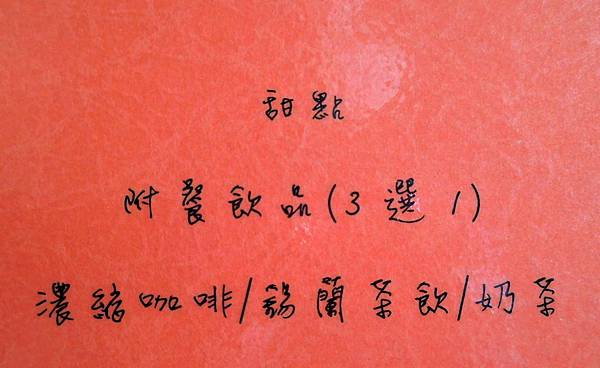 甜點
附餐飲品(3選1)
濃縮咖啡/錫蘭茶飲/奶茶